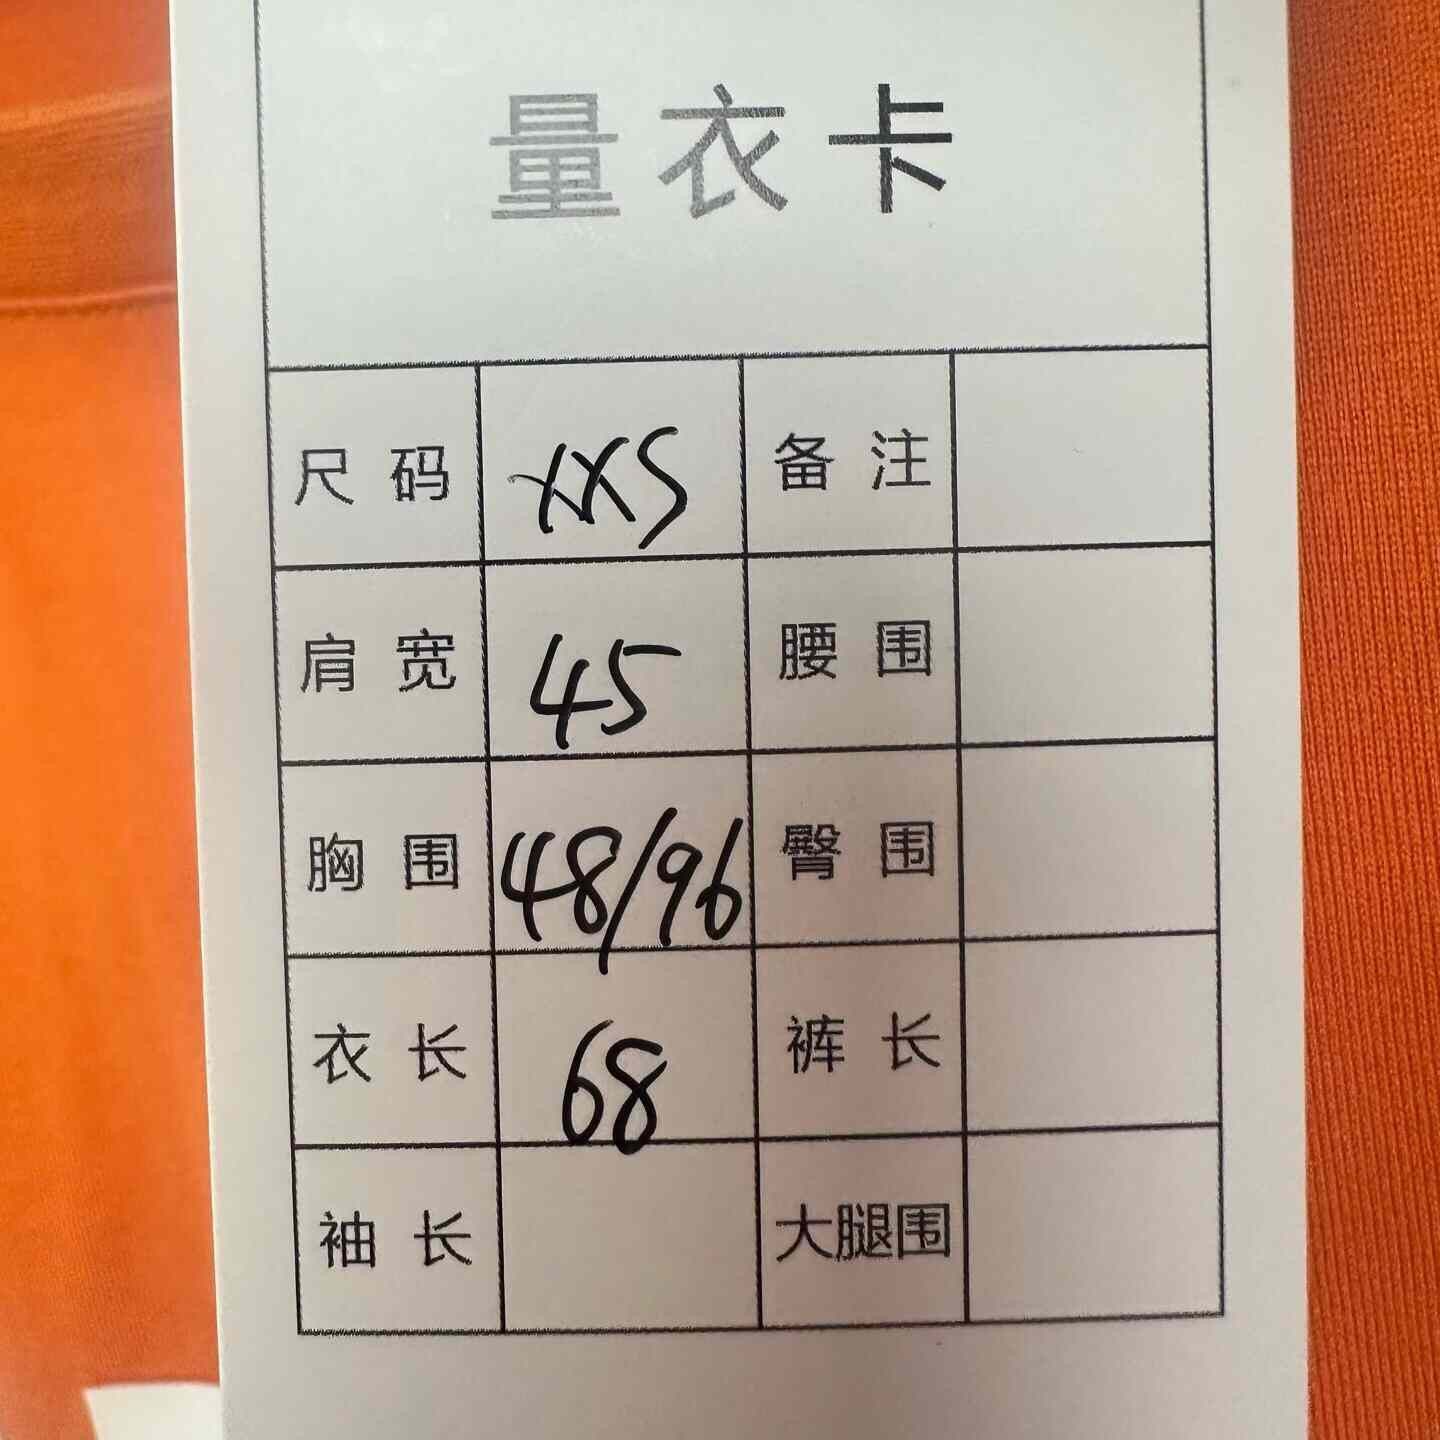 量衣卡
尺码 XXS 备注
肩宽 45 腰围
胸围 48/96 臀围
衣长 68 裤长
袖长 大腿围